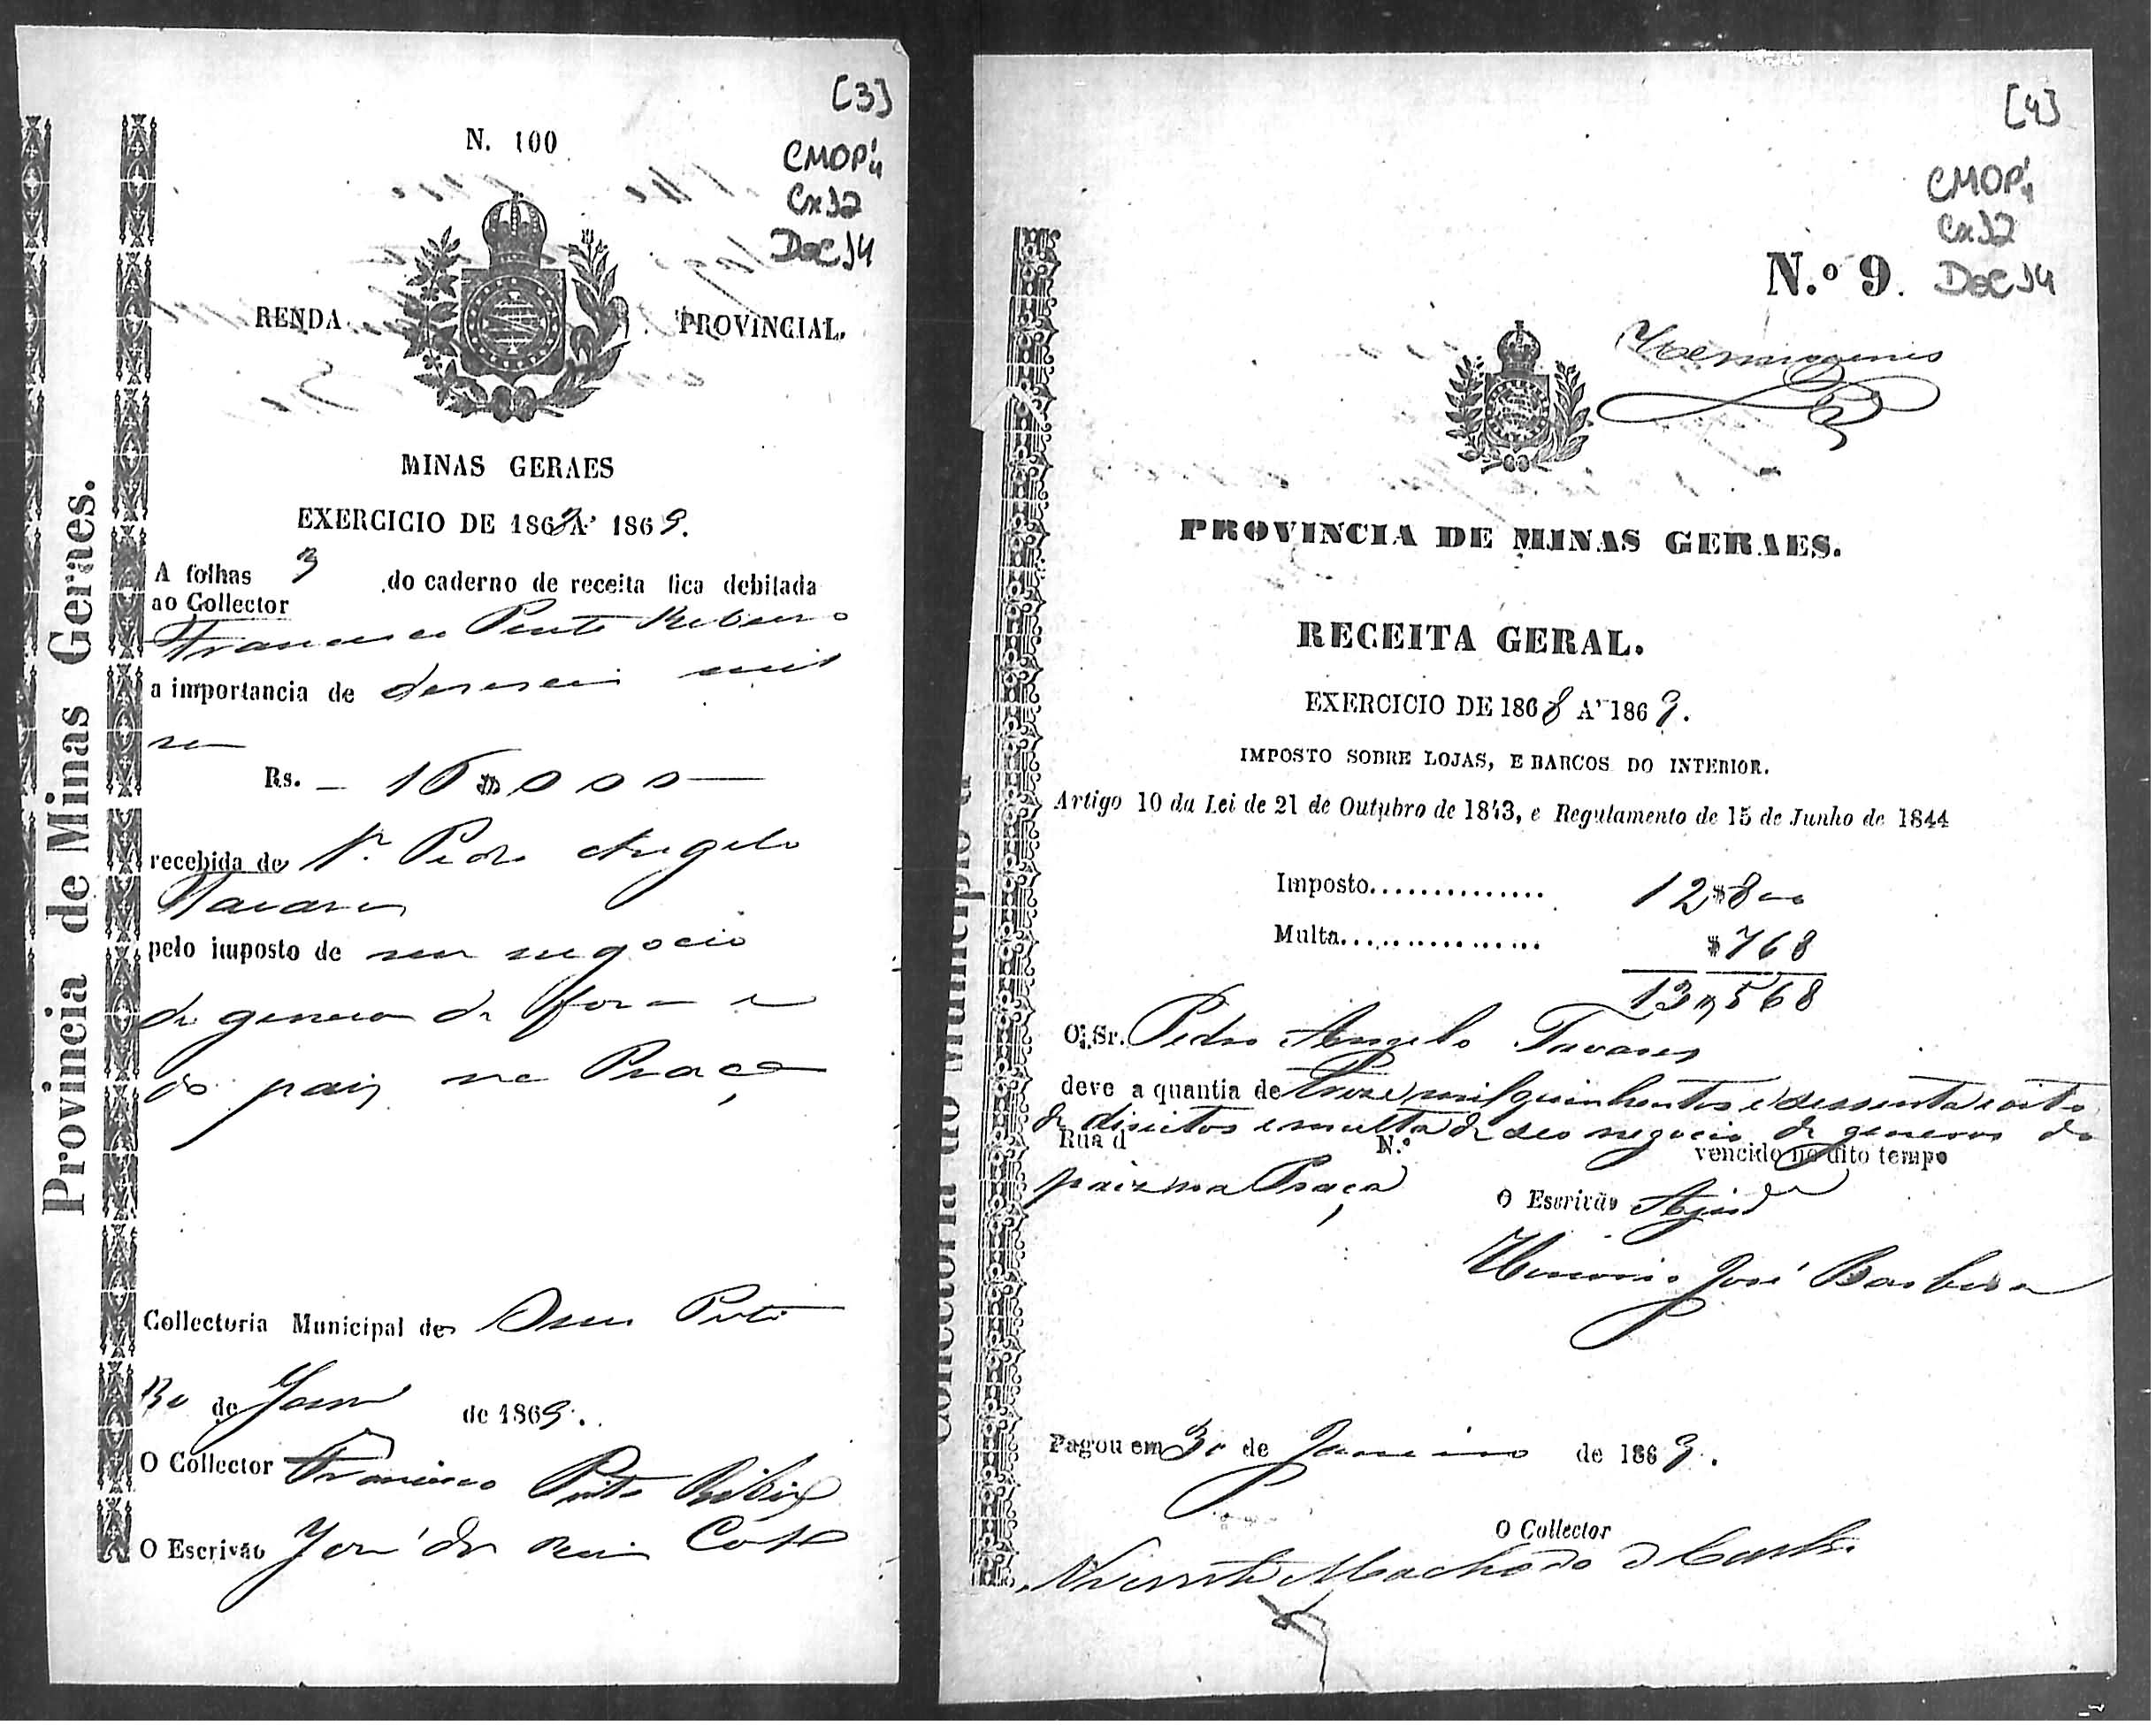 [3]
N. 100
CMOP¹4
Cx12
Doc 14
RENDA PROVINCIAL.
MINAS GERAES
EXERCICIO DE 1868 A' 1869.
A folhas 3 do caderno de receita fica debitada
ao Collector
Francisco Pinto Ribeiro
a importancia de deseseis mil
reis
Rs. – 16$000
recebida de Sr. Pedro Angelo
Tavares
pelo imposto de seu negocio
de generos de fora e
do paiz na Praça
Collectoria Municipal de Ouro Preto
30 de Janro de 1869.
O Collector Francisco Pinto Ribeiro
O Escrivão José dos Reis Costa
Provincia de Minas Geraes.
[4]
CMOP¹4
Cx12
N.º 9. Doc 14
Hermogenes
PROVINCIA DE MINAS GERAES.
RECEITA GERAL.
EXERCICIO DE 1868 A' 1869.
IMPOSTO SOBRE LOJAS, E BARCOS DO INTERIOR.
Artigo 10 da Lei de 21 de Outubro de 1843, e Regulamento de 15 de Junho de 1844
Imposto.............. 12$800
Multa................. $768
13$568
O Sr. Pedro Angelo Tavares
deve a quantia de Treze mil quinhentos e sessenta e oito
de direitos e multa de seo negocio de generos do
Rua d N.º vencido no dito tempo
paiz na Praça
O Escrivão Ajude
José Barbosa
Pagou em 30 de Janeiro de 1869.
O Collector
Vicente Machado de Castro
Collectoria do Municipio d